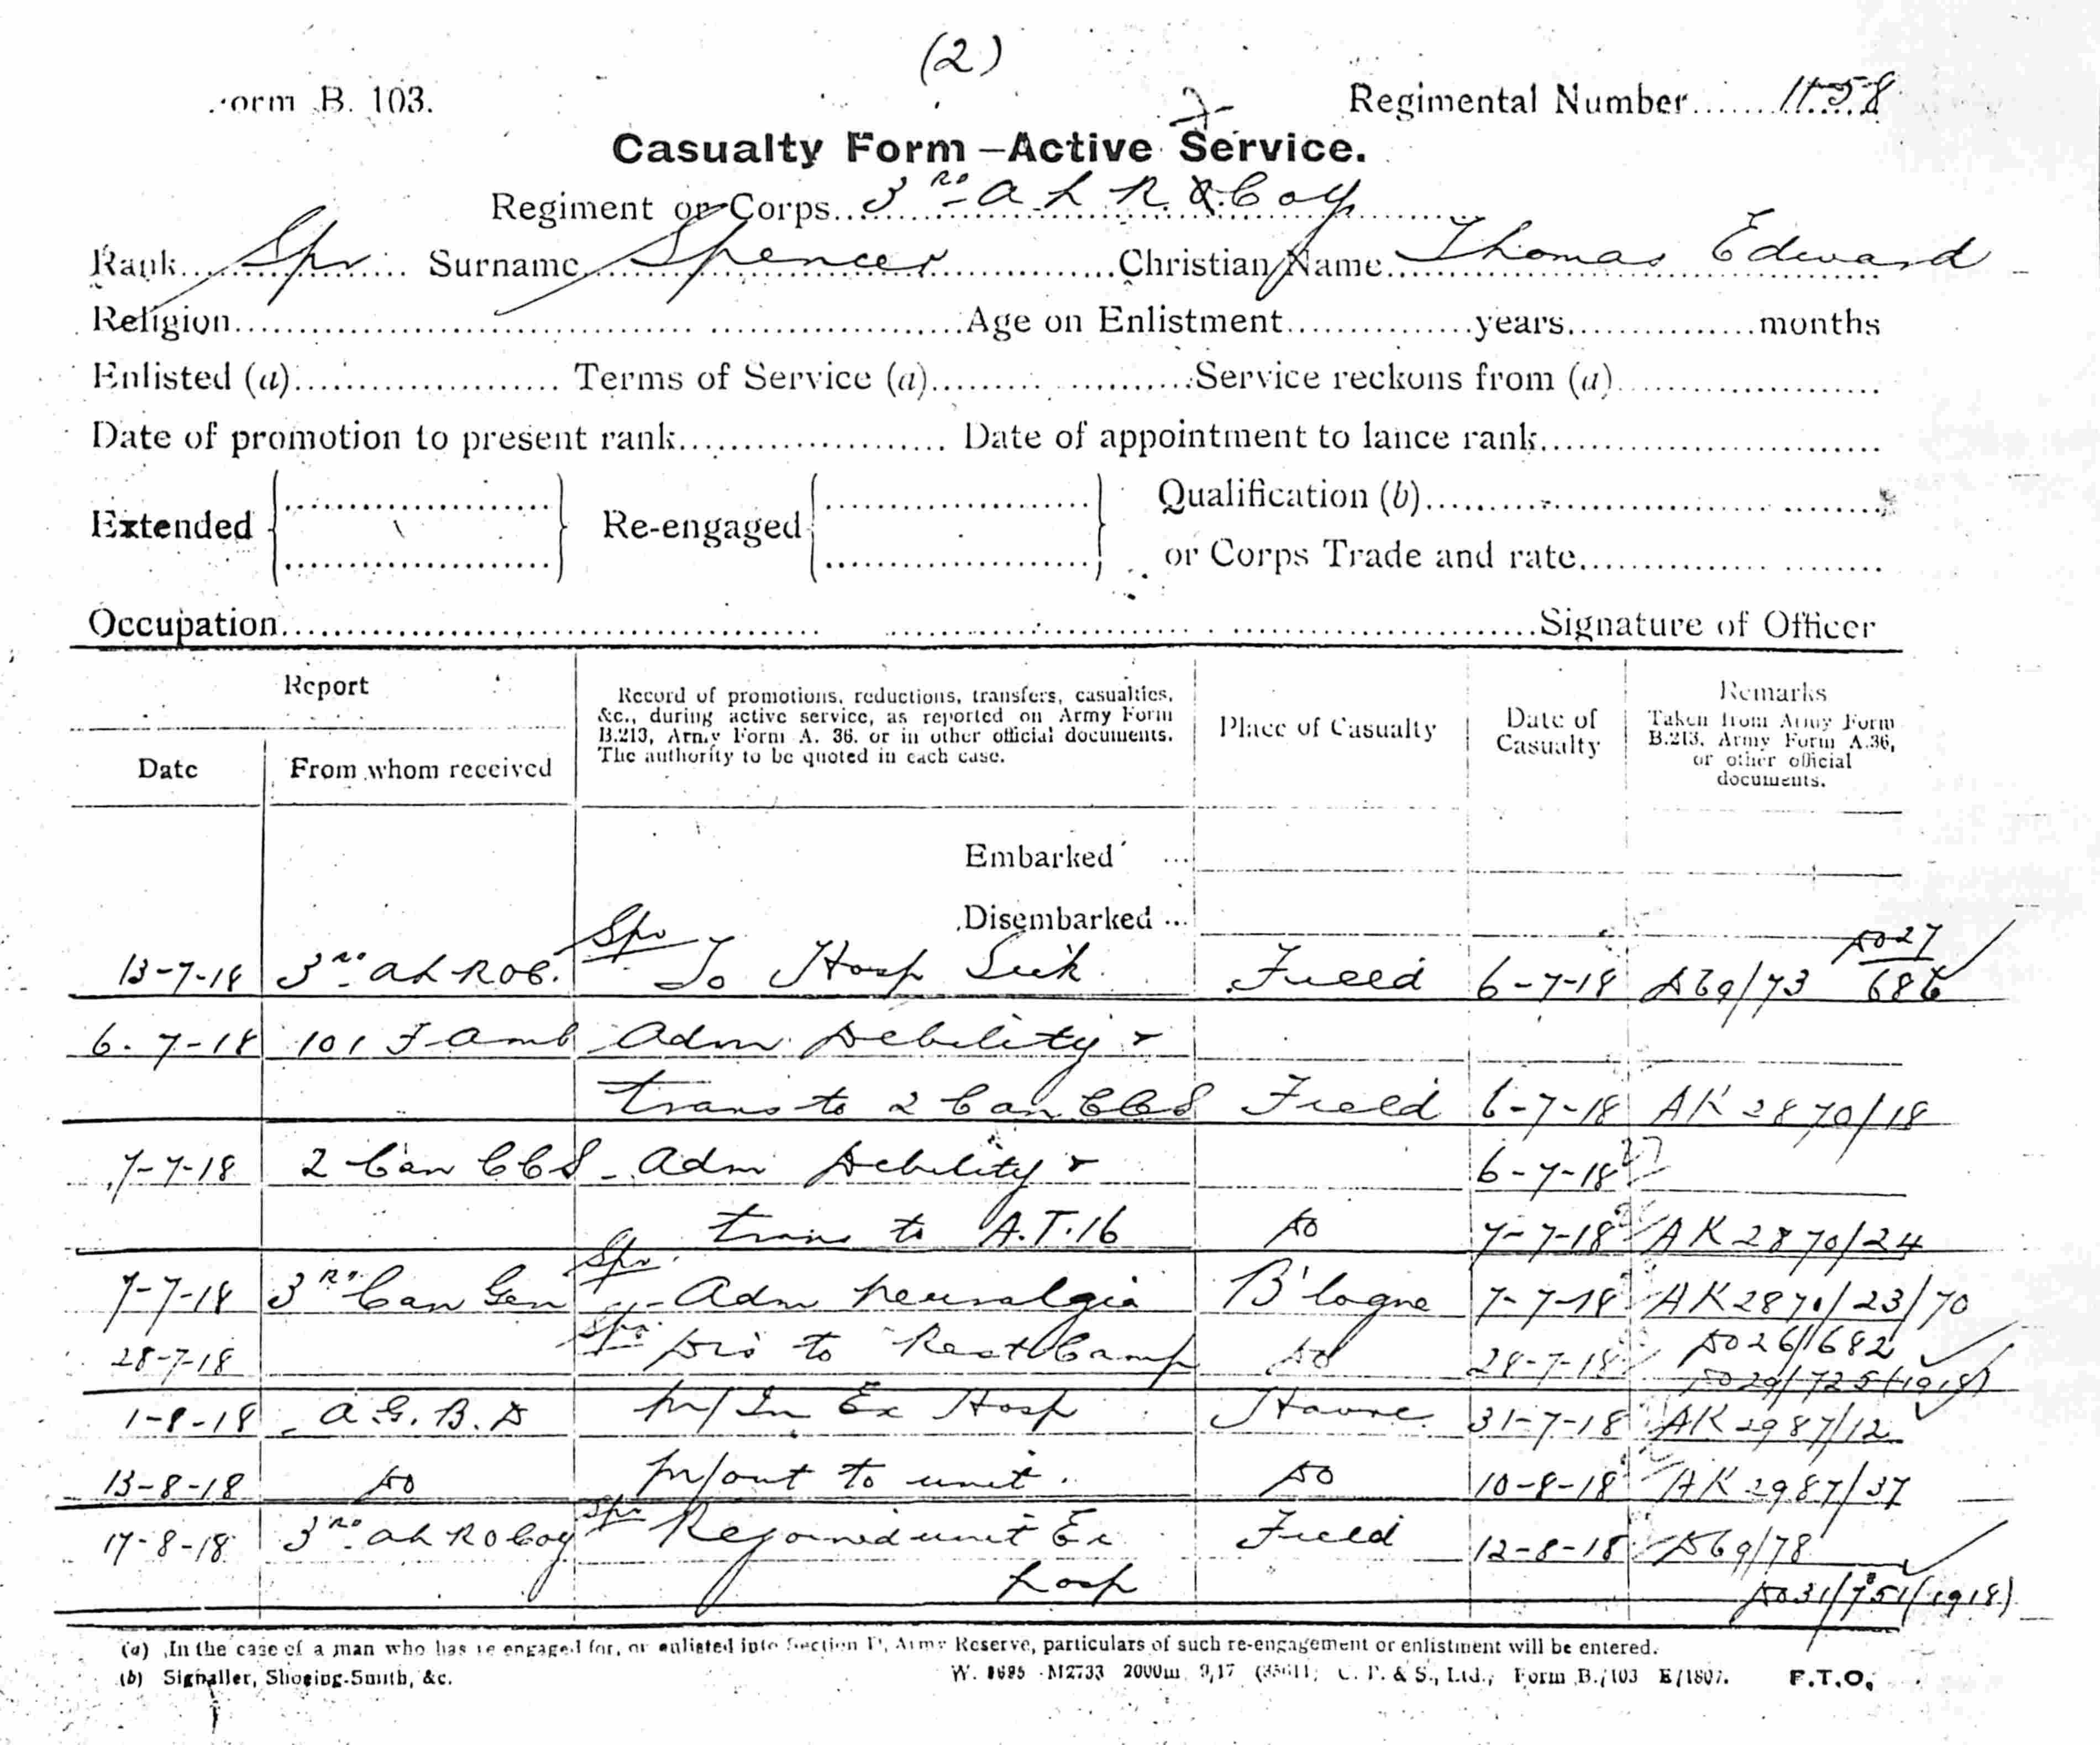 (2)
Form B. 103.
Regimental Number 1158
Casualty Form—Active Service.
Regiment or Corps 3rd A L R O Coy
Rank Spr Surname Spencer Christian Name Thomas Edward
Religion Age on Enlistment years months
Enlisted (a) Terms of Service (a) Service reckons from (a)
Date of promotion to present rank Date of appointment to lance rank
Extended Re-engaged Qualification (b)
or Corps Trade and rate
Occupation Signature of Officer
Report
Date From whom received
Record of promotions, reductions, transfers, casualties,
&c., during active service, as reported on Army Form
B.213, Army Form A. 36. or in other official documents.
The authority to be quoted in each case.
Place of Casualty
Date of
Casualty
Remarks
Taken from Army Form
B.213, Army Form A.36,
or other official
documents.
Embarked ...
Disembarked ...
13-7-18 3rd A L R O C. Spr To Hosp Sick Field 6-7-18 D69/73 DO 27/686
6-7-18 101 F Amb Adm Debility &
trans to 2 Can CCS Field 6-7-18 AK 2870/18
7-7-18 2 Can CCS - Adm Debility & 6-7-18
trans to A.T.16 Do 7-7-18 AK 2870/24
7-7-18 3rd Can Gen Spr - Adm neuralgia B'logne 7-7-18 AK 2870/23/70
28-7-18 Spr Dis to Rest Camp Do 28-7-18 DO 26/682
DO 29/725(1918)
1-8-18 A.G.B.D M/In Ex Hosp Havre 31-7-18 AK 2987/12
13-8-18 Do M/out to unit. Do 10-8-18 AK 2987/37
17-8-18 3rd A L R O Coy Spr Rejoined unit Ex Field 12-8-18 D69/78
hosp DO 31/751(1918)
(a) In the case of a man who has re-engaged for, or enlisted into Section D, Army Reserve, particulars of such re-engagement or enlistment will be entered.
(b) Signaller, Shoeing-Smith, &c. M2733 2000m 9/17 C. P. & S., Ltd., Form B./103 E/1807. P.T.O.